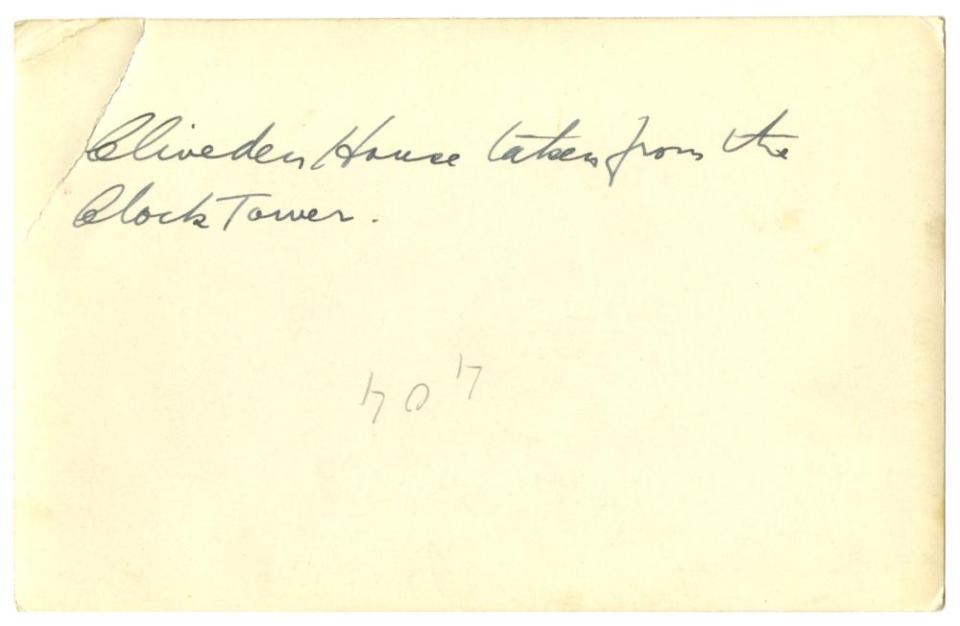 Cliveden House taken from the
Clock Tower.
404